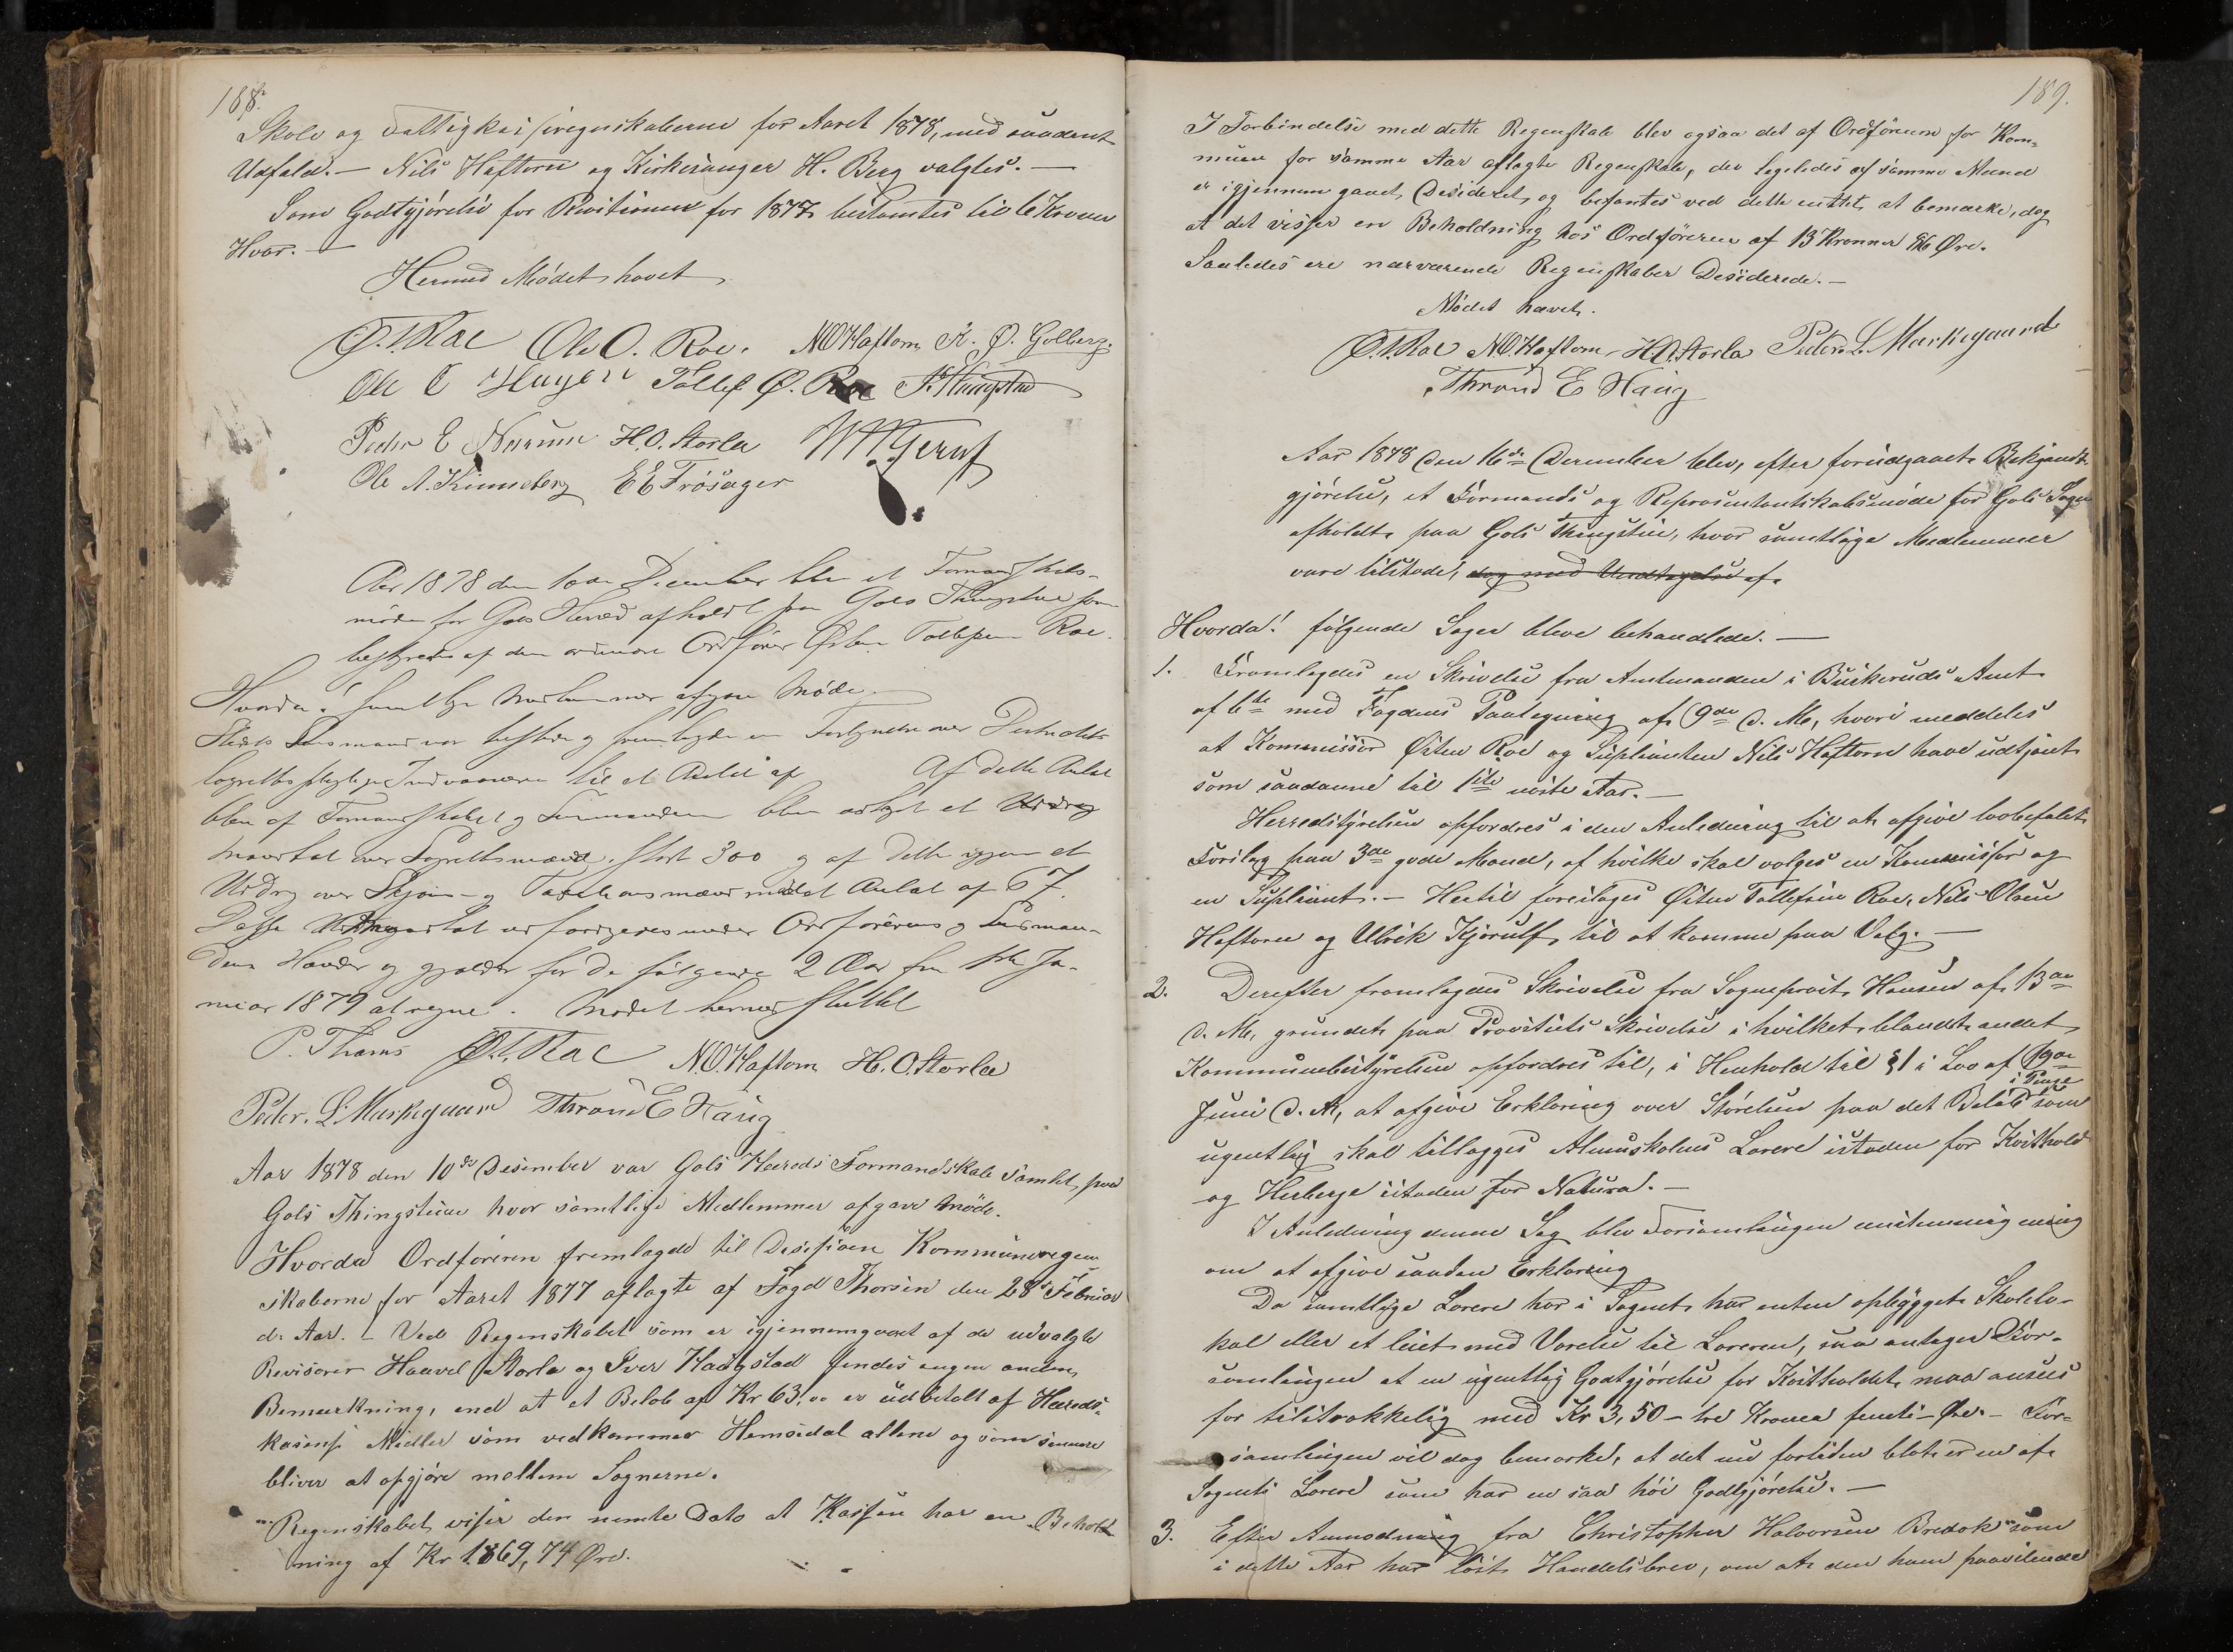 188.
Skole og Fattigkasseregnskaberne for Aaret 1878, med saadant
Udfald. – Nils Haftorn og Kirkesanger H. Berg valgtes. –
Som Godtgjørelse for Revisionen for 1877 bestemtes til 6 Kroner
Hver. –
Hermed Mødet hævet
Ø. T. Roe Ole O. Roe. N.O. Haftorn K. O. Golberg.
Ole O Huger Tollef Ø. Roe
Peder E H.O. Storla
Ole A. Kinneberg E E Trøsager
Aar 1878 den 10de December blev et Formandskabs-
møde for Gols Herred afholdt paa Gols Thingstue
bestyret af den Ordfører Østen Tollefsen Roe.
Hvorda! samtlige Medlemmer afgav Møde.
Stedets Lensmand var tilstede og fremlagde en Fortegnelse over Distriktets
lagrettespligtige Indvaanere til et Antal af Af dette Antal
blev af Formandskabet og Lensmanden blev udtaget et Udvalg
Mandtal over Lagrettesmænd, stort 300 og af dette igjen et
Udvalg over Skjøns- og Taxtionsmænd med et Antal af 67.
Disse Mandtal udfærdiges under Ordførerens og Lensman-
dens Hænder og gjælder for de følgende 2 Aar fra 1ste Ja-
nuar 1879 at regne. Mødet hermed sluttet
P. Thams Ø.T. Roe N.O. Haftorn H. O. Storla
Peder. L. Markegaard Thrond E Haug
Aar 1878 den 10de Desember var Gols Heereds Formandskab samlet paa
Gols Thingstue hvor samtlige Medlemmer afgave Møde.
Hvorda Ordføreren fremlagde til Desisjoen Kommuneregen-
skaberne for Aaret 1877 aflagte af Fogd Thorsen den 28de Februar
d. Aar. – Ved Regenskabet som er igjennemgaaet af de udvalgte
Revisorer Haavel Storla og Iver Haugstad findes ingen anden
Bemærkning, end at et Beløb af Kr 63,00 er udbetalt af Heereds-
kasens Midler som vedkommer Hemsedal allene og som senere
bliver at opgjøre mellem Sognerne.
Regenskabet viser den nemte Dato at Kassen har en Behold-
ning af Kr 1869,74 Øre.
189.
I Forbindelse med dette Regenskab blev ogsaa det af Ordføreren for Kom-
munen for samme Aar aflagte Regenskab, der ligeledes af samme Mænd
er igjennem gaaet, Desideret, og befantes ved dette intet at bemærke, dog
at det visser en Beholdning hos Ordføreren af 13 Kronner 86 Øre.
Saaledes ere nærværende Regenskaber Desiderede. –
Mødet hævet.
Ø.T. Roe N.O. Haftorn H.O. Storla Peder. L. Markegaard
Thrond E Haug
Aar 1878 den 16de December blev, efter forudgaaet Bekjendt-
gjørelse, et Formands og Repræsentantskabsmøde for Gols Sogn
afholdt paa Gols Thingstue, hvor samtlige Medlemmer
vare tilstede, dog med Undtagelse af
Hvorda! følgende Sager bleve behandlede. –
1. Fremlagdes en Skrivelse fra Amtmanden i Buskeruds Amt
af 6te med Fogdens Paategning af 9de d. M., hvori meddeles
at Kommissør Østen Roe og Suplianten Nils Haftorn have udtjent
som saadanne til 1ste næste Aar. –
Herredstyrelsen opfordres i den Anledning til at afgive lovbefalet
Forslag paa 3de gode Mænd, af hvilke skal vælges en Kommissør og
en Supliant. – Hertil foreslages Østen Tollefsen Roe, Nils Olsen
Haftorn og Ulrik Kjerulf til at komme paa Valg. –
2. Derefter fremlagdes Skrivelse fra Sogneprest Hansen af 13de
d. M., grundet paa Provstiets Skrivelse i hvilket blandt andet
Kommunebestyrelsen opfordres til, i Henhold til § 1 i Lov af 19de
Juni d. A., at afgive Erklæring over Størelsen paa det Beløb i Penge som
ugentlig skal tillægges Almuskolens Lærere istæden for Kosthold
og Herberge istæden for Natura. –
I Anledning denne Sag blev Forsamlingen enstemmig enig
om at afgive saadan Erklæring
Da samtlige Lærere her i Sognet har enten opbygget Skolelo-
kal eller et leiet med Værelse til Læreren, saa antager For-
samlingen at en ugentlig Godtgjørelse for Kostholdet maa ansees
for tilstrækkelig med Kr 3,50 – tre Kroner femti Øre. – For-
samlingen vil dog bemærke, at det nu fortiden blot er en af
Sognets Lærere som har en saa høi Godtgjørelse. –
3. Efter Anmodning fra Christopher Halvorsen Bredok som
i dette Aar har løst Handelsbrev, om at den ham paavilende